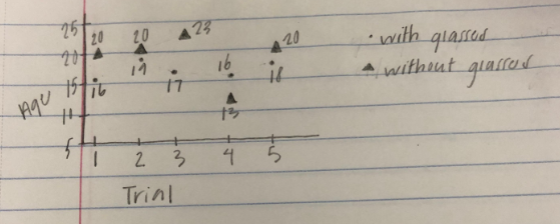 25
20 20 23
20 20
19 16 18
15 16 17
13
10
5
1 2 3 4 5
Trial
with glasses
without glasses